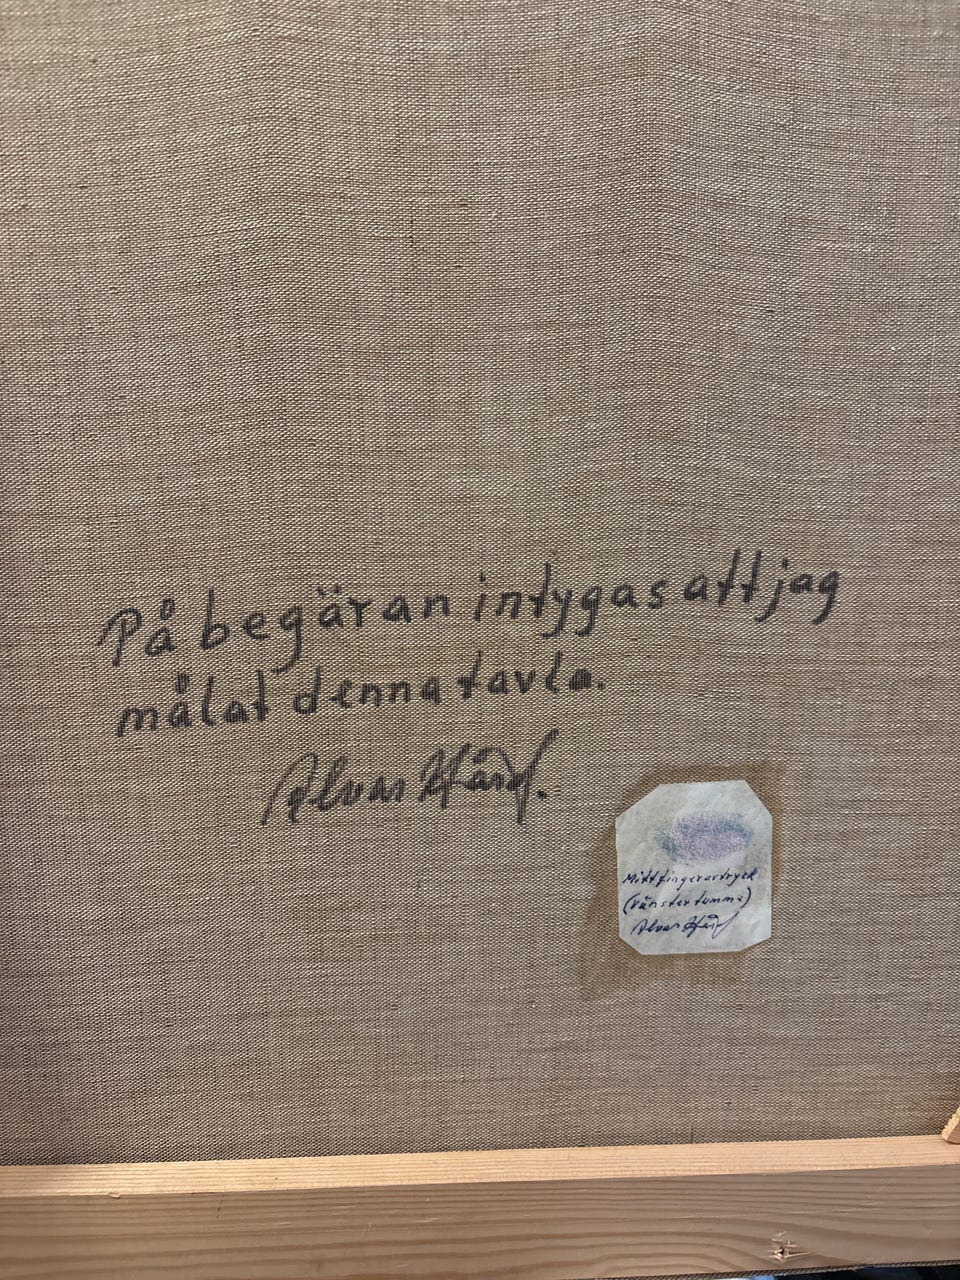 På begäran intygas att jag
målat denna tavla.
Alvar Hård.
Mitt fingeravtryck
(vänster tumme)
Alvar Hård